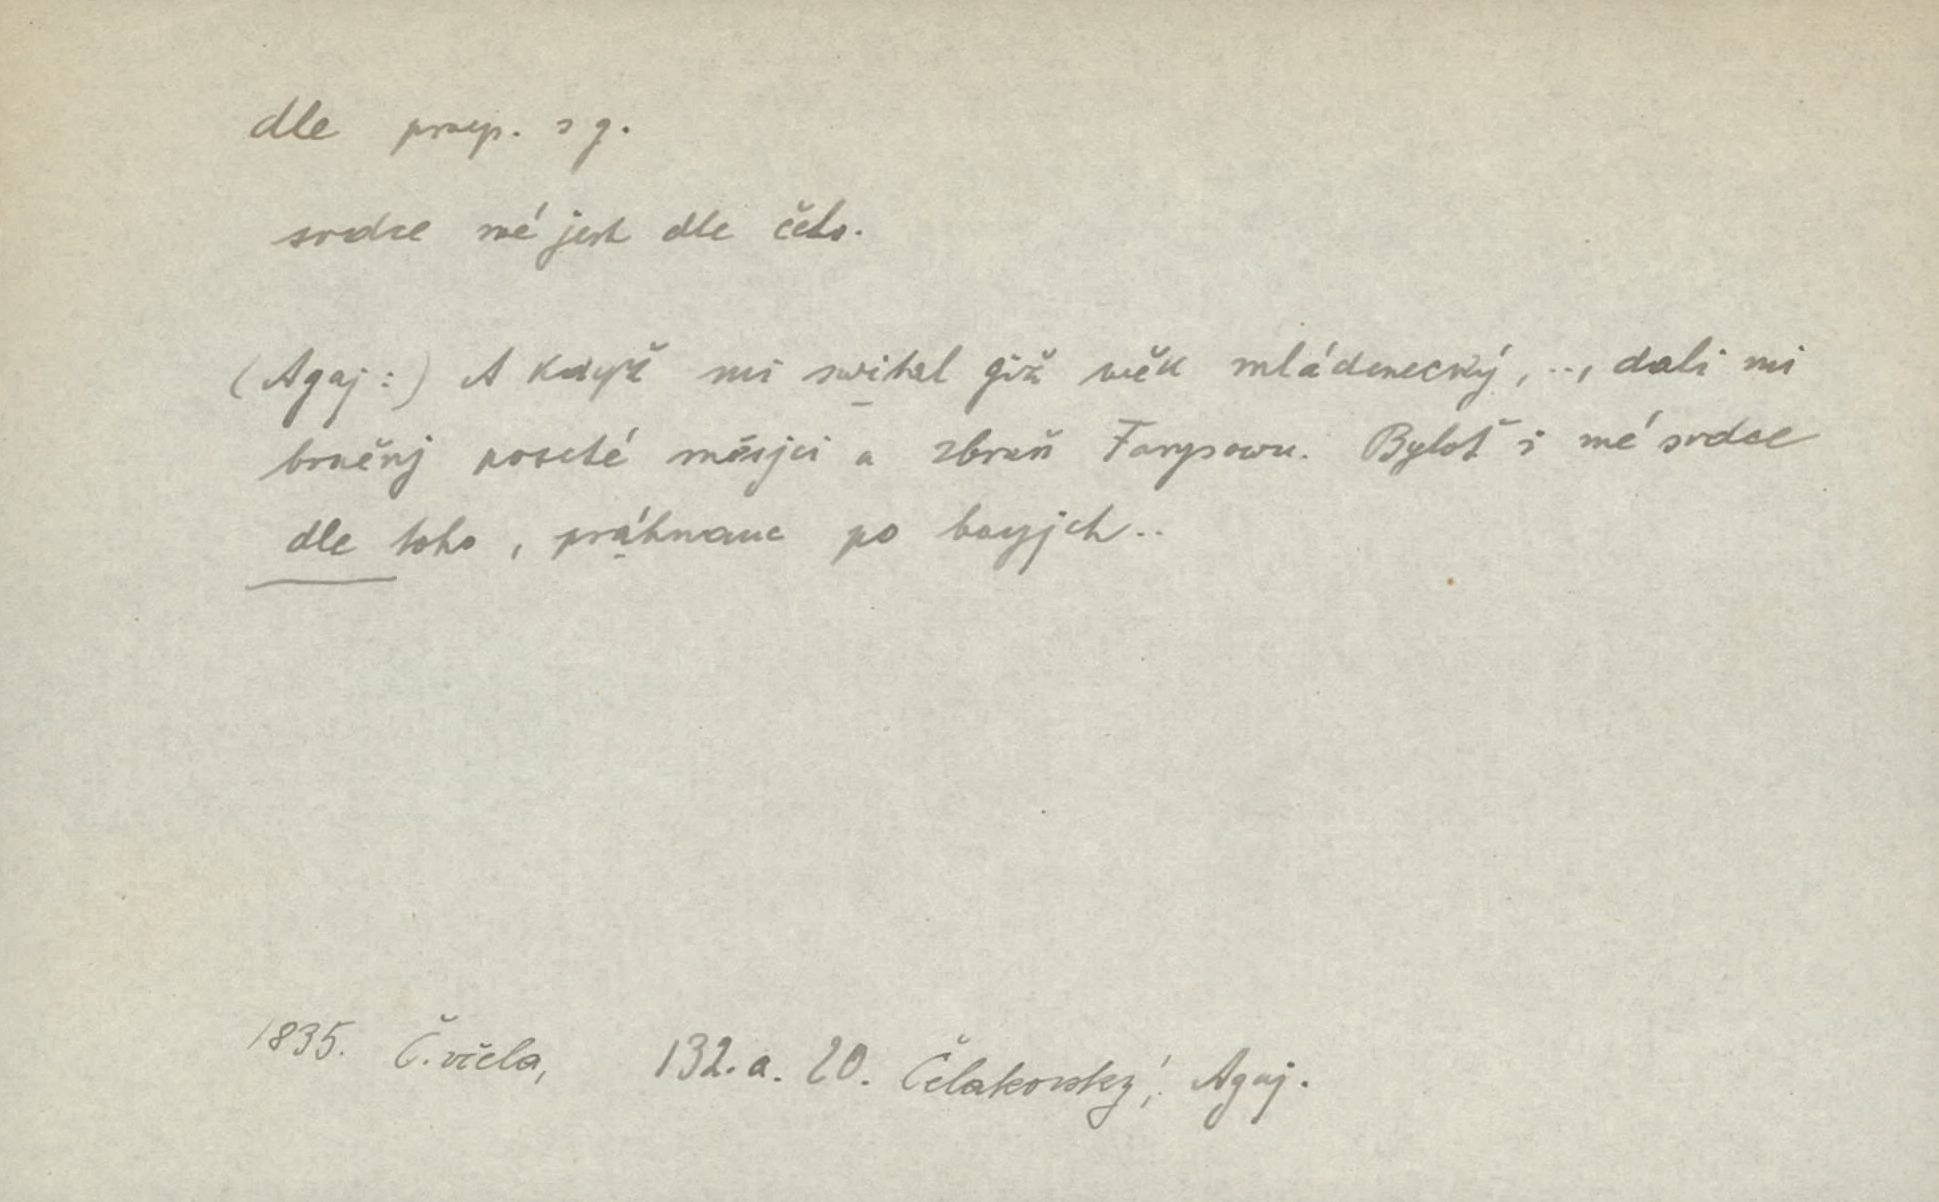 dle praep. s g.
srdce mé jest dle čeho.
(Agaj:) A když mi swital giž wěk mládenecký, .., dali mi
brněnj poseté měsjci a zbraň Farysowu. Byloť i mé srdce
dle toho, práhnauc po bogjch..
1835. Č. včela, 132. a. 20. Čelakovský, Agaj.